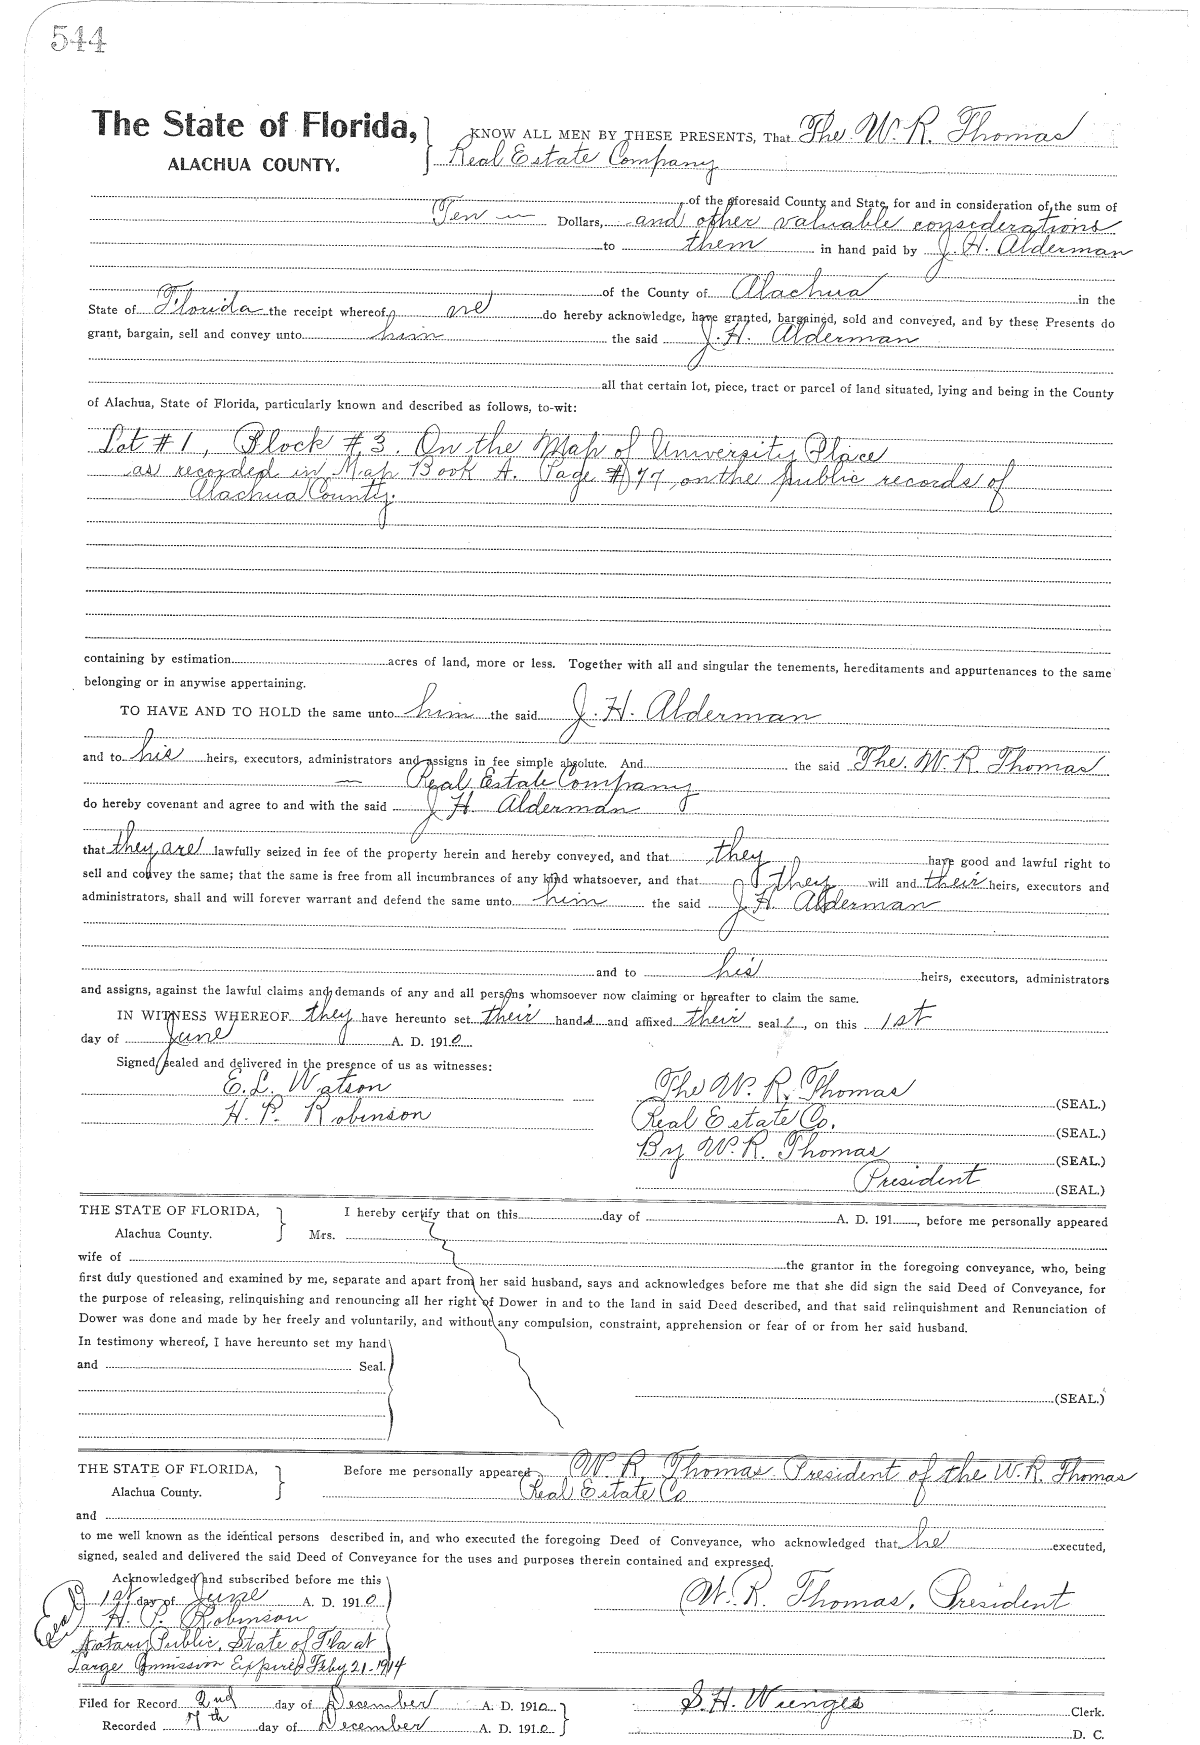 544
The State of Florida, KNOW ALL MEN BY THESE PRESENTS, That The W. R. Thomas
ALACHUA COUNTY. Real Estate Company
of the aforesaid County and State, for and in consideration of the sum of
Ten Dollars, and other valuable considerations
to them in hand paid by J. H. Alderman
of the County of Alachua in the
State of Florida the receipt whereof do hereby acknowledge, have granted, bargained, sold and conveyed, and by these Presents do
grant, bargain, sell and convey unto him the said J. H. Alderman
all that certain lot, piece, tract or parcel of land situated, lying and being in the County
of Alachua, State of Florida, particularly known and described as follows, to-wit:
Lot #1, Block #3. On the Map of University Place
as recorded in Map Book A. Page #77, on the public records of
Alachua County.
containing by estimation acres of land, more or less. Together with all and singular the tenements, hereditaments and appurtenances to the same
belonging or in anywise appertaining.
TO HAVE AND TO HOLD the same unto him the said J. H. Alderman
and to his heirs, executors, administrators and assigns in fee simple absolute. And the said The. W. R. Thomas
Real Estate Company
do hereby covenant and agree to and with the said J H Alderman
that they are lawfully seized in fee of the property herein and hereby conveyed, and that they have good and lawful right to
sell and convey the same; that the same is free from all incumbrances of any kind whatsoever, and that they will and their heirs, executors and
administrators, shall and will forever warrant and defend the same unto him the said J H Alderman
and to his heirs, executors, administrators
and assigns, against the lawful claims and demands of any and all persons whomsoever now claiming or hereafter to claim the same.
IN WITNESS WHEREOF they have hereunto set their hands and affixed their seal, on this 1st
day of June A. D. 1910
Signed, sealed and delivered in the presence of us as witnesses:
E. L. Watson The W. R. Thomas (SEAL.)
H. P. Robinson Real Estate Co. (SEAL.)
By W. R. Thomas (SEAL.)
President (SEAL.)
THE STATE OF FLORIDA, I hereby certify that on this day of A. D. 191 , before me personally appeared
Alachua County. Mrs.
wife of the grantor in the foregoing conveyance, who, being
first duly questioned and examined by me, separate and apart from her said husband, says and acknowledges before me that she did sign the said Deed of Conveyance, for
the purpose of releasing, relinquishing and renouncing all her right of Dower in and to the land in said Deed described, and that said relinquishment and Renunciation of
Dower was done and made by her freely and voluntarily, and without any compulsion, constraint, apprehension or fear of or from her said husband.
In testimony whereof, I have hereunto set my hand
and Seal.
(SEAL.)
THE STATE OF FLORIDA, Before me personally appeared W. R. Thomas President of the W. R. Thomas
Alachua County. Real Estate Co
and
to me well known as the identical persons described in, and who executed the foregoing Deed of Conveyance, who acknowledged that he executed,
signed, sealed and delivered the said Deed of Conveyance for the uses and purposes therein contained and expressed.
Acknowledged and subscribed before me this
Seal 1st day of June A. D. 1910 W. R. Thomas, President
H. P. Robinson
Notary Public, State of Fla at
Large Commission Expires Feby 21-1914
Filed for Record 2nd day of December A. D. 1910 S. H. Wienges Clerk.
Recorded 7th day of December A. D. 1910 D. C.